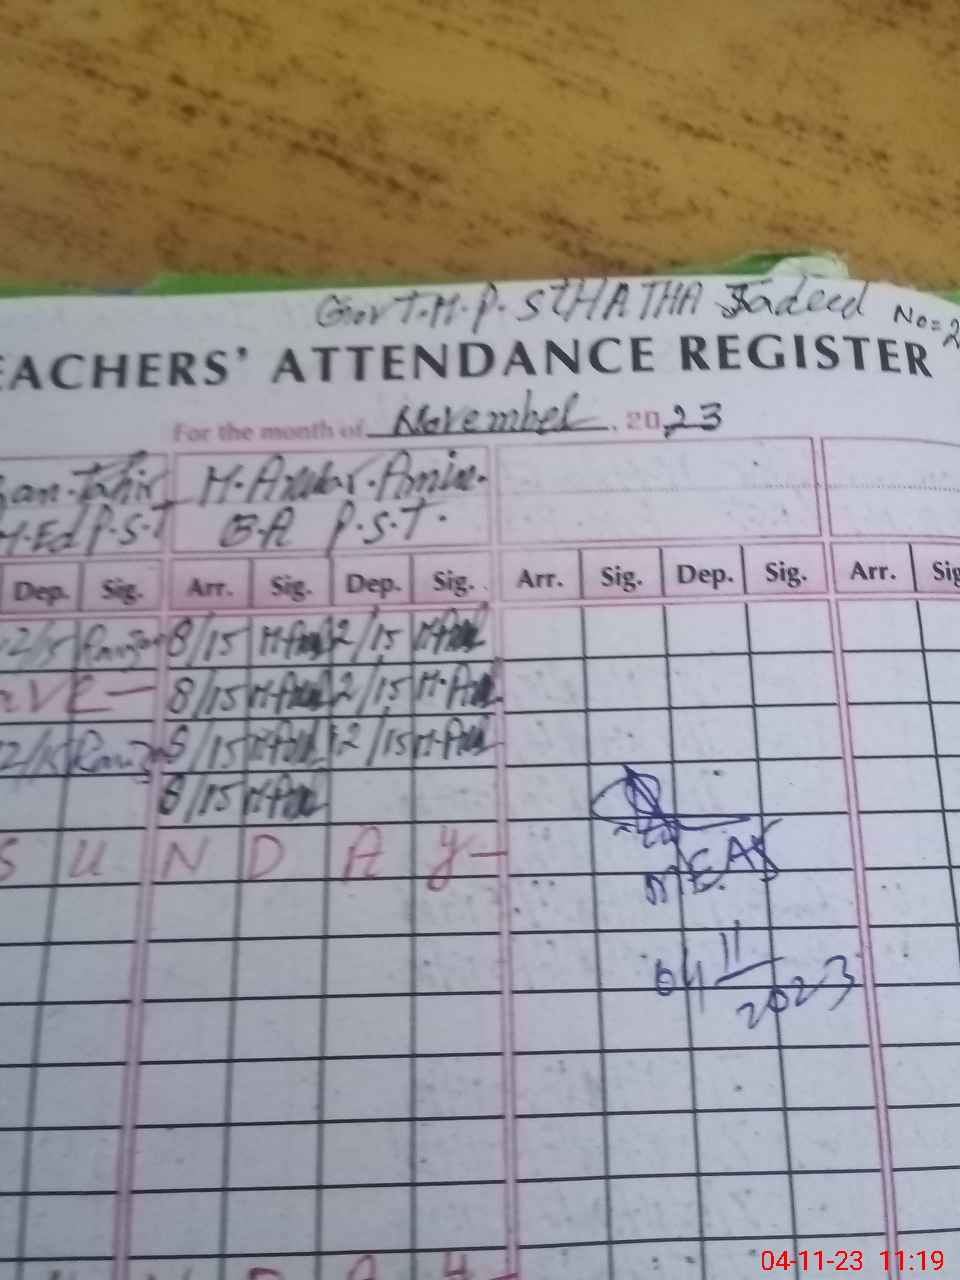 Govt. M. P. S tHATHA Jadeed No=2
EACHERS' ATTENDANCE REGISTER
For the month of November, 2023
Tahir M. Anwar. Amin.
M.Ed P.S.T B.A P.S.T.
Dep. Sig. Arr. Sig. Dep. Sig. Arr. Sig. Dep. Sig. Arr. Sig
12/15 8/15 12/15
ave — 8/15 12/15
12/15 8/15 12/15
8/15
S U N D A Y —
MEAS
04/11/2023
D A Y
04-11-23 11:19